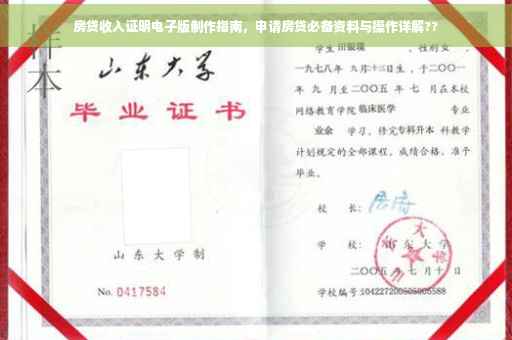 房贷收入证明电子版制作指南，申请房贷必备资料与操作详解??
样本
山东大学
毕业证书
山东大学制
No. 0417584
学生
性别女，
一九七八年 九月十三日生，于二〇〇一
年 九 月至二〇〇五 年 七 月在本校
网络教育学院 临床医学 专业
业余 学习，修完专科升本 科教学
计划规定的全部课程，成绩合格，准予
毕业。
校 长：
学 校： 山东大学
二〇〇五 年 七 月 十 日
学校编号:104227200505005588